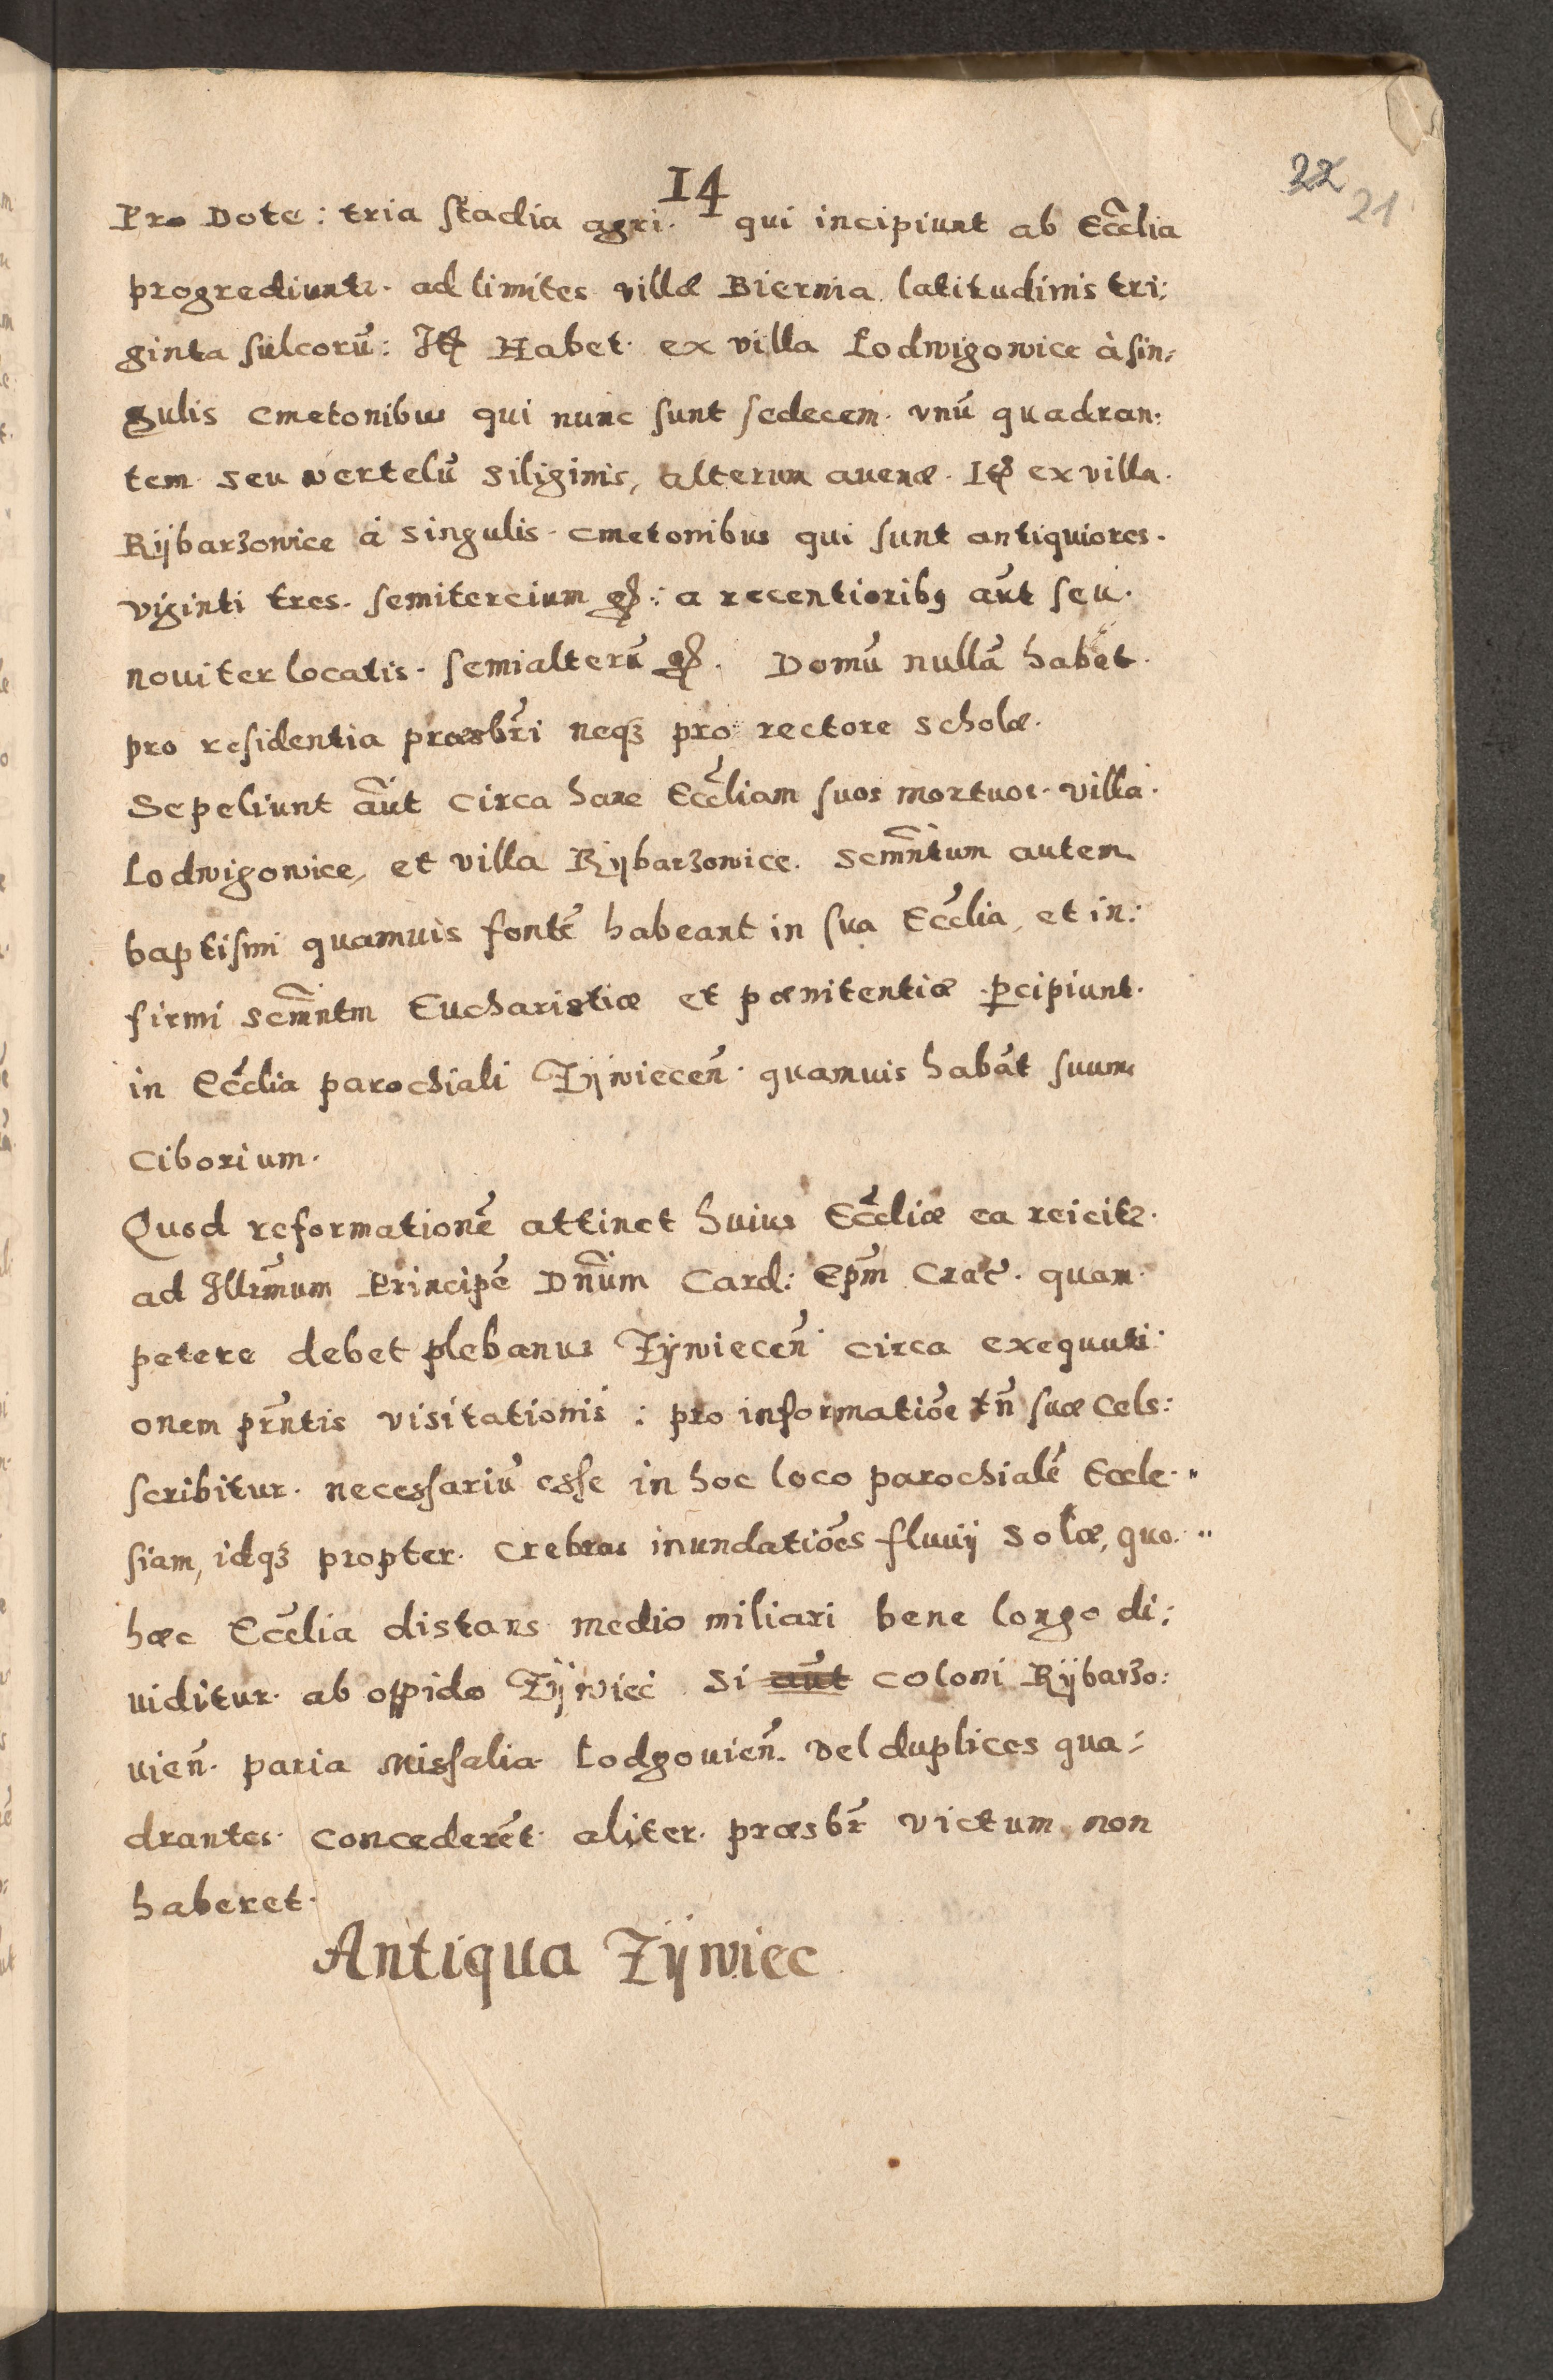 14
22
21
Pro Dote: tria stadia agri. qui incipiunt ab Eccãlia
progrediuntr. ad limites villæ Biernia latitudinis tri:
ginta sulcorũ: Itẽ Habet ex villa Lodwigowice à sin:
gulis cmetonibus qui nunc sunt sedecem. vnũ quadran:
tem seu wertelũ siliginis, alterum auenæ. Itẽ ex villa
Rÿbarzowice à singulis cmetonibus qui sunt antiquiores.
viginti tres. semitercium gr: a recentioribꝯ aũt seu.
nouiter locatis. semialterũ gr. Domũ nullã habet.
pro residentia præsbr̃i neqꝫ pro rectore scholæ.
Sepeliunt aũt circa hanc Eccl̃iam suos mortuos. villa.
Lodwigowice, et villa Rÿbarzowice. Scmñtum autem
baptismi quamuis fontẽ habeant in sua Eccl̃ia, et in:
firmi scmñtm Eucharistiæ et pœnitentiæ ꝑcipiunt.
in Eccl̃ia parochiali Zÿwiecen̄. quamuis habãt suum
ciborium.
Quod reformationẽ attinet huius Eccl̃iæ ea reicitr.
ad Illr̃mum Principẽ Dñum Card: Ep̃m Crac̃. quam
petere debet plebanus Zÿwiecen̄ circa exequuti
onem pr̃ntis visitationis: pro informatiõe tñ suæ Cels:
scribitur. necessariũ esse in hoc loco parochialẽ Eccle.„
siam, idqꝫ propter. crebras inundatiões fluuij Solæ, quo.„
hæc Eccl̃ia distans medio miliari bene longo di:
uiditur. ab oppido Zÿwiec si aũt coloni Rÿbarzo:
uien̄. paria Missalia Lodgouien̄. vel duplices qua:
drantes. concederẽt. aliter. præsbr̃ victum non
haberet.
Antiqua Zÿwiec